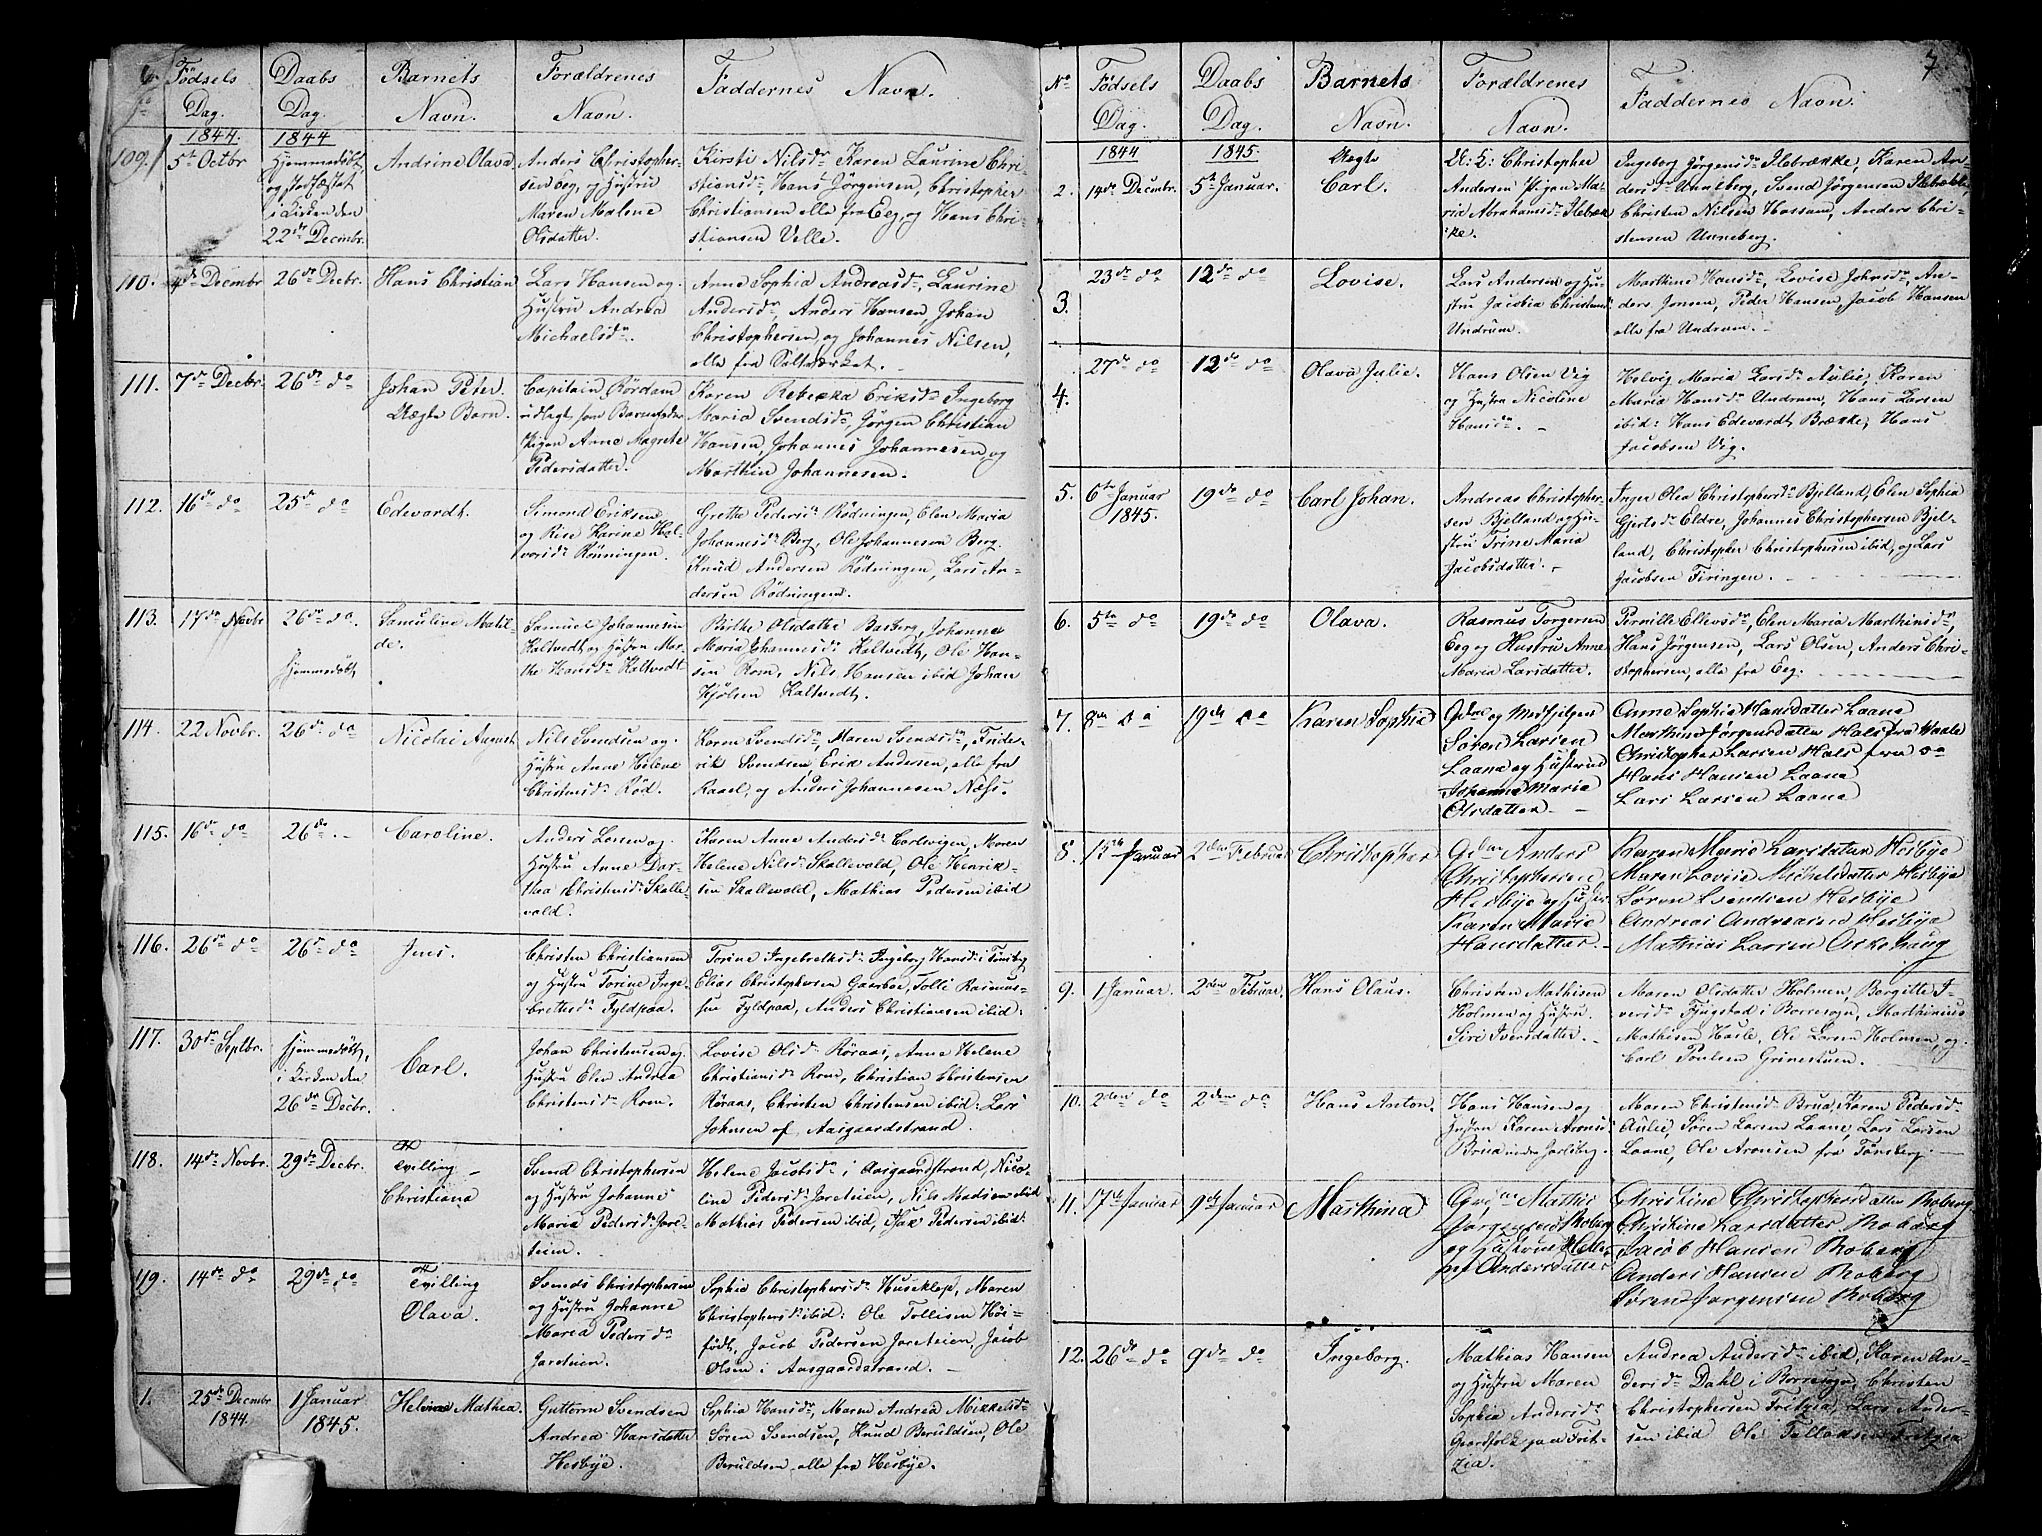 Fødsels Dag.
Daabs Dag.
Barnets Navn.
Forældrenes Navn.
Faddernes Navn.
1844. 1844
109. 5te Octbr
Hjemmedøbt
og stadfæstet
i Kirken den
22de Decmbr.
Andrine Olava
Anders Christopher-
sen Eeg, og Hustru
Maren Malene
Olsdatter.
Kirsti Nilsdr Karen Laurine Chri-
stiansdr, Hans Jørgensen, Christopher
Christiansen alle fra Eeg, og Hans Chri-
stiansen Velle.
110. 4de Decmbr 26de Decbr. Hans Christian
Lars Hansen og
Hustru Andrea
Michaelsdr.
Anne Sophia Andreasdr, Laurine
Andersdr, Anders Hansen Johan
Christophersen, og Johannes Nilsen,
alle fra Saltværket.
111. 7de Decbr. 26de do
Johan Peter.
Uægte Barn.
Capitain Rørdam
udlagt som Barnefader
Pigen Anne Magrete
Pedersdatter.
Karen Rebekka Eriksdr Ingeborg
Maria Svendsdr, Jørgen Christian
Hansen, Johannes Johannesen og
Marthin Johannesen.
112. 16de do 25de do Edevardt.
Simond Eriksen
og Rise Karine Hal-
vorsdr Rønningen.
Grethe Pedersdr Rødningen, Elen Maria
Johannesdr Berg, Ole Johannesen Berg.
Knud Andersen Rødningen, Lars An-
dersen Rødningen.
113. 17de Novbr 26de do.
Hjemmedøbt
Samuline Matil-
de.
Samuel Johannesen
Kaltvedt og Hustru Mar-
the Hansdr Kaltvedt
Birthe Olsdatter Basberg, Johanne
Maria Johannesdr Kaltvedt, Ole Han-
sen Rom, Nils Hansen ibid Johan
Hjølsen Kaltvedt.
114. 22 Novbr. 26de do Nicolai August
Nils Svendsen og
Hustru Anne Helene
Christensdr Rød.
Karen Svendsdr, Maren Svendsdr, Fride-
rik Svendsen Erik Andersen, alle fra
Raael, og Anders Johannesen Næss.
115. 16de do 26de Caroline.
Anders Larsen og
Hustru Anne Dor-
thea Christensdr Skalle-
vold.
Karen Anne Andersdr Carlsvigen, Maren
Helene Nilsdr Skallevold, Ole Henrik-
sen Skallevold, Mathias Pedersen ibid
116. 26de do 26de do Jens.
Christen Christiansen
og Hustru Torine Inge-
bretsdr Fyldpaa.
Torine Ingebretsdr Ingeborg Hansdr i Tønsberg
Elias Christophersen Gaarboe, Tolle Rasmus-
sen Fyldpaa, Anders Christiansen ibid:
117. 30de Septbr.
Hjemmedøbt,
i Kirken den
26de Decbr.
Carl.
Johan Christensen og
Hustru Elen Andrea
Christensdr Rom.
Lovise Olsdr Røraas, Anne Helene
Christiansdr Rom, Christian Christensen
Røraas, Christen Christensen ibid: Lars
Johnsen af Aasgaardstrand.
118. 14de Novbr. 29de Decbr.
Tvilling
Christiana
Svend Christophersen
og Hustru Johanne
Maria Pedersdr Jare-
teien.
Helene Jacobsdr i Aasgaardstrand, Nico-
line Pedersdr Jareteien, Nils Madsen ibid
Mathias Pedersen ibid, Isax Pedersen ibid:
119. 14de do 29de do
Tvilling
Olava.
Svends Christophersen
og Hustru Johanne
Maria Pedersdr
Jareteien.
Sophie Christophersdr Huseklep, Maren
Christophersdr ibid: Ole Tollisen Høi-
født, Jacob Pedersen Jareteien, Jacob
Olsen i Aasgaardstrand.
1. 25de Decmbr
1844.
1 Januar
1845.
Helvine Mathea.
Guttorm Svendsen
Andrea Hansdatter
Hesbye.
Sophia Hansdr, Maren Andrea Mikkelsdr
Søren Svendsen, Knud Beruldsen, Ole
Beruldsen alle fra Hesbye.
7
No Fødsels Dag.
Daabs Dag.
Barnets Navn.
Forældrenes Navn.
Faddernes Navn.
1844 1845.
2. 14de Decmbr. 5te Januar.
Uægte
Carl.
U: K: Christopher
Andersen Pigen Ma-
rie Abrahamsdr Ilebræk-
ke.
Ingeborg Jørgensdr Ilebrække, Karen An-
dersdr Unneberg, Svend Jørgensen Ilebrække
Christen Nilsen Hassum, Anders Chri-
stensen Unneberg.
3. 23de do 12de do Lovise.
Lars Andersen og Hu-
stru Jacobia Christensdr
Undrum.
Marthine Hansdr, Lovise Johnsdr, An-
ders Jonsen, Peder Hansen, Jacob Hansen
alle fra Undrum.
4. 27de do 12de do Olava Julie.
Hans Olsen Vig
og Hustru Nicoline
Hansdr.
Helvig Maria Larsdr Aulie, Karen
Maria Hansdr Undrum, Hans Larsen
ibid: Hans Edevardt Brække, Hans
Jacobsen Vig.
5. 6te Januar
1845.
19de do Carl Johan.
Andreas Christopher-
sen Bjelland og Hu-
stru Trine Maria
Jacobsdatter.
Inger Olea Christophersdr Bjelland, Elen Sophia
Gjertsdr Eldre, Johannes Christophersen Bjel-
land, Christopher Christophersen ibid, og Lars
Jacobsen Firingen.
6. 5te do 19de do Olava.
Rasmus Torgersen
Eeg og Hustru Anne
Maria Larsdatter.
Pernille Ellevsdr, Elen Maria Marthinsdr,
Hans Jørgensen, Lars Olsen, Anders Chri-
stophersen, alle fra Eeg.
7. 8de do 19de do Karen Sophie
Gdm og Medhjelper
Søren Larsen
Laane og Hustrue
Johanne Maria
Olsdatter
Anne Sophia Hansdatter Laane
Marthine Jørgensdatter Hals fra Vaale
Christopher Larsen Hals fra do
Hans Hansen Laane
Lars Larsen Laane
8. 15de Januar 2den Februar Christopher
Gdm Anders
Christophersen
Hesbye og Hustru
Karen Marie
Hansdatter.
Karen Marie Larsdatter Hesbye
Maren Lovise Michelsdatter Hesbye
Søren Svendsen Hesbye
Andreas Andreasen Hesbye
Mathias Larsen Askehaug
9. 1 Januar. 2den Februar. Hans Olaus.
Christen Mathisen
Holmen og Hustru
Siri Iversdatter.
Maren Olsdatter Holmen, Borgitte I-
versdr Fyugstad i Borresogn, Marthinius
Mathisen Hasle, Ole Larsen Holmen, og
Carl Poulsen Grinestuen.
10. 2den do 2den do Hans Anton.
Hans Hansen og
Hustru Karen Aronsdr
Brua under Jarlsberg.
Maren Christensdr Brua, Karen Pedersdr
Aulie, Søren Larsen Laane, Lars Larsen
Laane, Ole Aronsen fra Tønsberg.
11. 17de Januar 9de Januar Marthina
Gdm Mathis
Jørgensen Roberg
og Hustrue Helle-
ne Andersdatter
Christine Christophersdatter Roberg
Christine Larsdatter Roberg
Jacob Hansen Roberg
Anders Hansen Roberg
Søren Jørgensen Roberg
12. 26de do 9de do Ingeborg.
Mathias Hansen
og Hustru Maren
Sophia Andersdr
Gaardfolk paa Frit-
zia.
Andrea Andersdr ibid, Karen An-
dersdr Dahl i Borresogn, Christen
Christophersen Fritzia, Lars Ander-
sen ibid Ole Tollodsen Fritzia